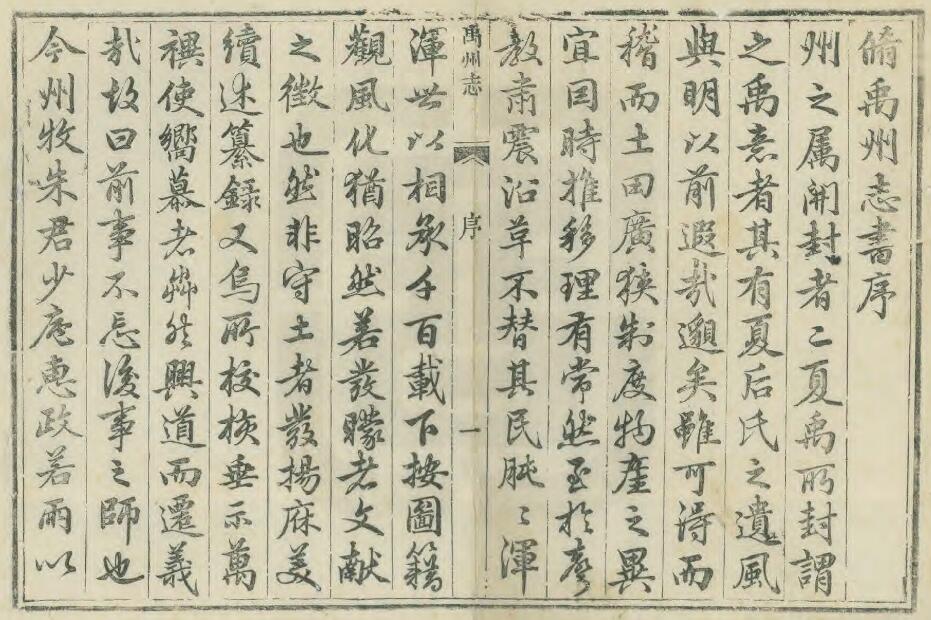 脩禹州志書序
州之属開封者二夏禹所封謂
之禹意者其有夏后氏之遺風
與明以前遐哉邈矣雖可得而
稽而土田廣狹制度物產之異
宜因時推移理有常然至於
教肅震沿革不替其民肫〻渾
禹州志 序 一
渾世以相承千百載下按圖籍
觀風化猶昭然若發矇者文献
之徵也然非守土者發揚庥美
續述纂錄又烏所校核垂示萬
禩使嚮慕者然興道而遷義
哉故曰前事不忘後事之師也
今州牧朱君少庵惠政若雨以